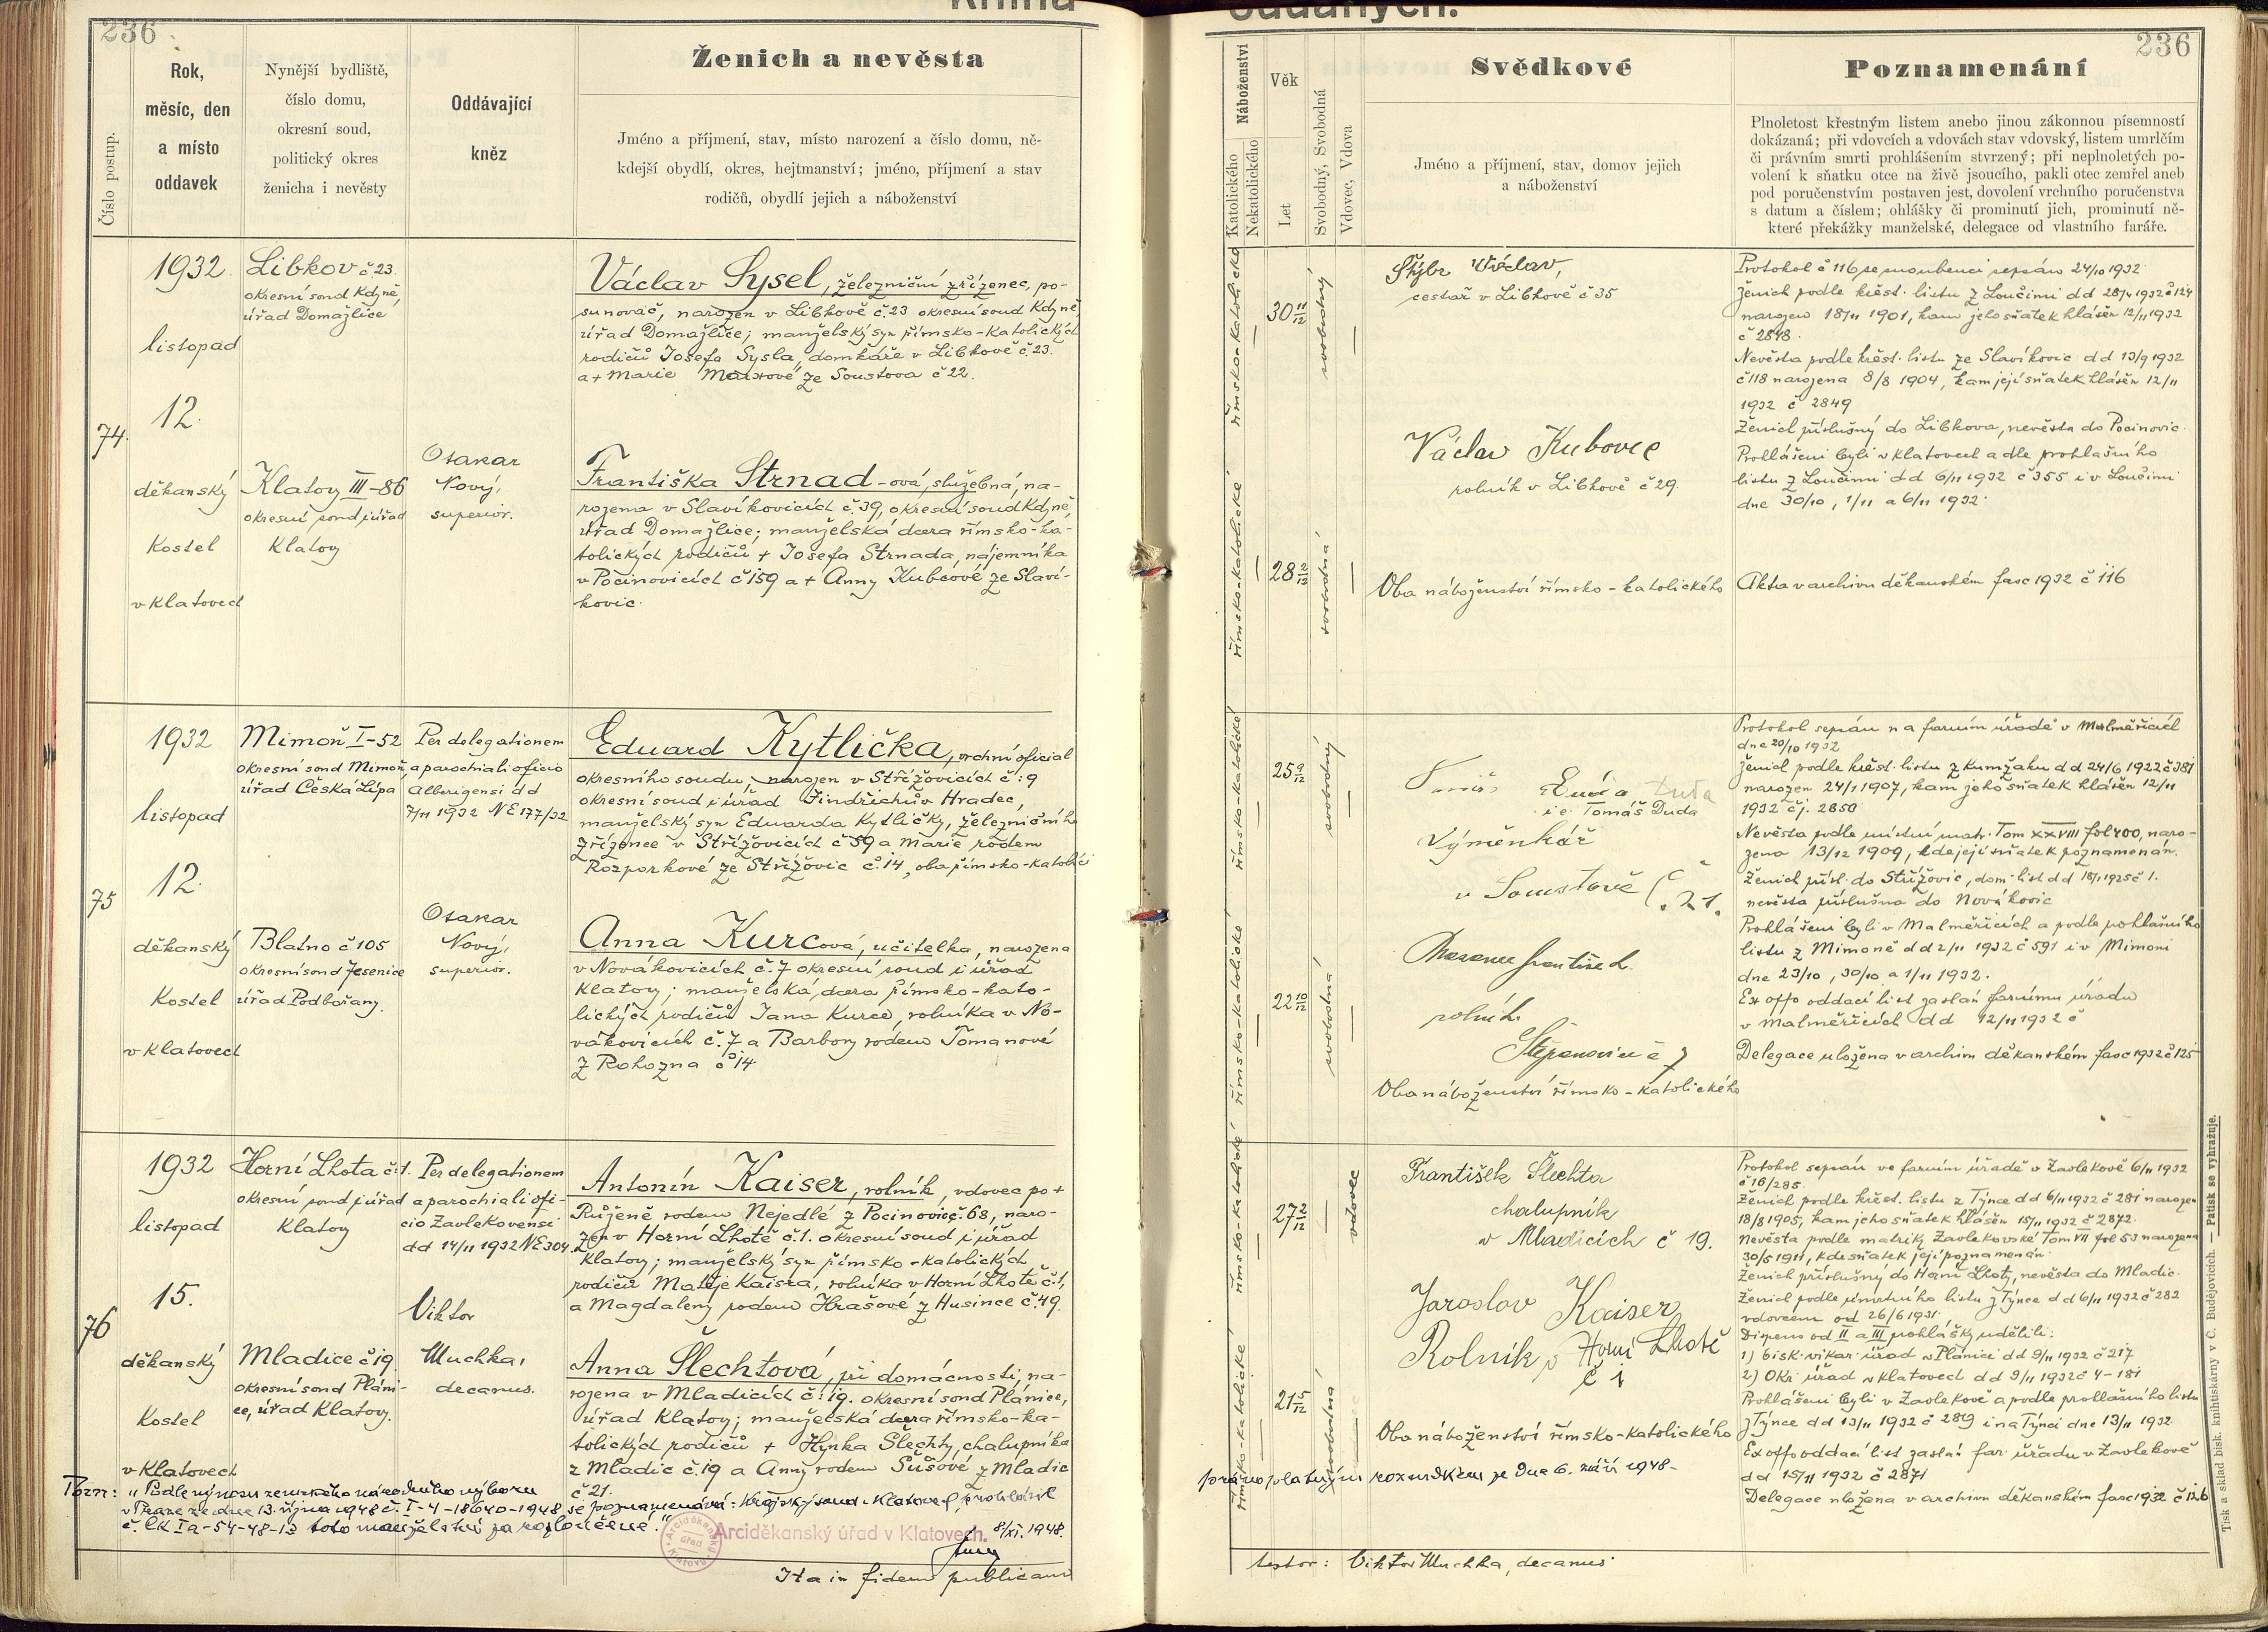 236
Kniha
Číslo postup.
Rok,
měsíc, den
a místo
oddavek
Nynější bydliště,
číslo domu,
okresní soud,
politický okres
ženicha i nevěsty
Oddávající
kněz
Ženich a nevěsta
Jméno a příjmení, stav, místo narození a číslo domu, ně-
kdejší obydlí, okres, hejtmanství; jméno, příjmení a stav
rodičů, obydlí jejich a náboženství
74.
1932
listopad
12.
děkanský
Kostel
v Klatovech
Libkov č 23.
okresní soud Kdyně,
úřad Domažlice
Klatovy III-86
okresní soud i úřad
Klatovy
Otakar
Nový,
superior.
Václav Sysel, železniční zřízenec, po-
sunovač, narozen v Libkově č.23 okresní soud Kdyně,
úřad Domažlice; manželský syn římsko-katolických
rodičů Josefa Sysla, domkáře v Libkově č.23.
a + Marie ze Soustova č 22.
Františka Strnad-ová, služebná, na-
rozena v Slavíkovicích č.39, okresní soud Kdyně,
úřad Domažlice; manželská dcera římsko-ka-
tolických rodičů + Josefa Strnada, nájemníka
v Pocinovicích č 159 a + Anny Kubcové ze Slaví-
kovic.
75
1932
listopad
12.
děkanský
Kostel
v Klatovech
Mimoň I-52
okresní soud Mimoň,
úřad Česká Lípa
Blatno č 105
okresní soud Jesenice
úřad Podbořany.
Per delegationem
a parochiali oficio
dd
7/11 1932 NE 177/32
Otakar
Nový,
superior.
Eduard Kytlička, vrchní oficial
okresního soudu, narozen v Střížovicích č: 9
okresní soud i úřad Jindřichův Hradec,
manželský syn Eduarda Kytličky, železničního
zřízence v Střížovicích č 59 a Marie rodem
Rozporkové ze Střížovic č.14, oba římsko-katolíci
Anna Kurcová, učitelka, narozena
v Novákovicích č.7 okresní soud i úřad
Klatovy; manželská dcera římsko-kato-
lických rodičů Jana Kurce, rolníka v No-
vákovicích č.7 a Barbory rodem Tomanové
z Rohozna č 14
76
1932
listopad
15.
děkanský
Kostel
v Klatovech
Horní Lhota č:1.
okresní soud i úřad
Klatovy
Mladice č 19.
okresní soud Pláni-
ce, úřad Klatovy.
Per delegationem
a parochiali ofi-
cio Zavlekovensi
dd 14/11 1932 NE 304.
Viktor
Muchka,
decanus.
Antonín Kaiser, rolník, vdovec po +
Růženě rodem Nejedlé z Pocinovic č.68, naro-
zen v Horní Lhotě č.1. okresní soud i úřad
Klatovy; manželský syn římsko-katolických
rodičů Matěje Kaisra, rolníka v Horní Lhotě č.1,
a Magdaleny rodem Hrašové z Husince č.49.
Anna Šlechtová, při domácnosti, na-
rozena v Mladicích č:19. okresní soud Plánice,
úřad Klatovy; manželská dcera římsko-ka-
tolických rodičů + Hynka Šlechty, chalupníka
z Mladic č.19 a Anny rodem Šüšové z Mladic
č 21.
Pozn: "Podle výnosu zemského národního výboru
v Praze ze dne 13. října 1948 č. I-4-18640-1948 se poznamenává: Krajský soud v Klatovech prohlásil
č. Ck Ia-54-48-13 toto manželství za rozloučené."
Arciděkanský úřad v Klatovech.
8/XI. 1948.
Ita in fidem publicam
236
oddaných.
Náboženství
Katolického
Nekatolického
Věk
Let
Svobodný, Svobodná
Vdovec, Vdova
Svědkové
Jméno a příjmení, stav, domov jejich
a náboženství
Poznamenání
Plnoletost křestným listem anebo jinou zákonnou písemností
dokázaná; při vdovcích a vdovách stav vdovský, listem umrlčím
či právním smrti prohlášením stvrzený; při neplnoletých po-
volení k sňatku otce na živě jsoucího, pakli otec zemřel aneb
pod poručenstvím postaven jest, dovolení vrchního poručenstva
s datum a číslem; ohlášky či prominutí jich, prominutí ně-
které překážky manželské, delegace od vlastního faráře.
římsko-katolické
30 11/12
svobodný
římsko-katolické
28 2/12
svobodná
Štýbr Václav,
cestář v Libkově č 35
Václav Kubovec
rolník v Libkově č 29.
Oba náboženství římsko-katolického
Protokol č 116 se snoubenci sepsán 24/10 1932
ženich podle křest. listu z Loučimi dd 28/4 1932 č 124
narozen 18/11 1901, kam jeho sňatek hlášen 12/11 1932
č 2848.
Nevěsta podle křest. listu ze Slavíkovic dd 13/9 1932
č 118 narozena 8/8 1904, kam její sňatek hlášen 12/11
1932 č 2849
Ženich příslušný do Libkova, nevěsta do Pocinovic.
Prohlášeni byli v Klatovech a dle prohlašního
listu z Loučimi dd 6/11 1932 č 355 i v Loučimi
dne 30/10, 1/11 a 6/11 1932.
Akta v archivu děkanském fasc 1932 č 116
římsko-katolické
25 9/12
svobodný
římsko-katolické
22 10/12
svobodná
Duda
i.e. Tomáš Duda
Výměnkář
v Soustově č. 21.
František
rolník
Štěpánovice č 7
Oba náboženství římsko-katolického
Protokol sepsán na farním úřadě v Malměřicích
dne 20/10 1932
Ženich podle křest. listu z Kumžaku dd 24/6 1922 č 381
narozen 24/1 1907, kam jeho sňatek hlášen 12/11
1932 čj. 2850
Nevěsta podle místní matr. Tom XXVIII fol 400, naro-
zena 13/12 1909, kde její sňatek poznamenán.
Ženich přísl. do Střížovic, dom. list dd 18/1 1925 č 1.
nevěsta příslušna do Novákovic
Prohlášeni byli v Malměřicích a podle prohlašního
listu z Mimoně dd 2/11 1932 č 591 i v Mimoni
dne 23/10, 30/10 a 1/11 1932.
Ex offo oddací list zaslán farnímu úřadu
v Malměřicích dd 12/11 1932 č
Delegace uložena v archivu děkanském fasc 1932 č 125
římsko-katolické
27 2/12
vdovec
římsko-katolické
21 5/12
svobodná
František Šlechta
chalupník
v Mladicích č 19.
Jaroslav Kaiser
Rolník v Horní Lhotě
č 1
Oba náboženství římsko-katolického
Protokol sepsán ve farním úřadě v Zavlekově 6/11 1932
č 16/285.
Ženich podle křest. listu z Týnce dd 6/11 1932 č 281 narozen
18/8 1905, kam jeho sňatek hlášen 15/11 1932 č 2872.
Nevěsta podle matriky Zavlekovské Tom VII fol 53 narozena
30/5 1911, kde sňatek její poznamenán.
Ženich příslušný do Horní Lhoty, nevěsta do Mladic.
Ženich podle úmrtního listu z Týnce dd 6/11 1932 č 282
vdovcem od 26/6 1931.
Dispens od II a III prohlášky udělili:
1) bisk. vikar. úřad v Plánici dd 9/11 1932 č 217
2) Okr. úřad v Klatovech dd 9/11 1932 č 4-181
Prohlášeni byli v Zavlekově a podle prohlašního listu
z Týnce dd 13/11 1932 č 289 i na Týnci dne 13/11 1932.
Ex offo oddací list zaslán far. úřadu v Zavlekově
dd 15/11 1932 č 2871
Delegace uložena v archivu děkanském fasc 1932 č 126
právoplatným rozsudkem ze dne 6. září 1948-
testor: Viktor Muchka, decanus.
Tisk a sklad bisk. knihtiskárny v Č. Budějovicích. — Patisk se vyhražuje.